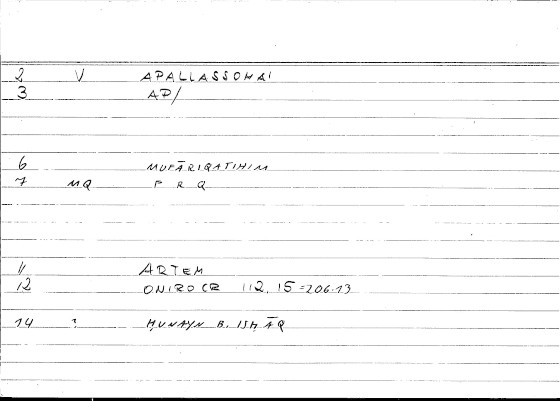 2 V APALLASSOMAI
3 AP/
6 MUFĀRIQATIHIM
7 MQ F R Q
11 ARTEM
12 ONIROCR 112, 15 = 206.13
14 ? ḤUNAYN B. ISḤĀQ